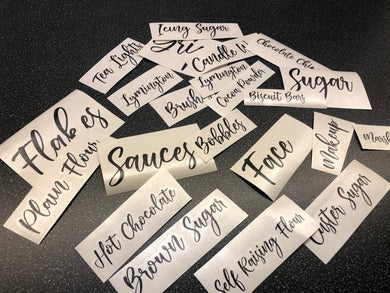 Icing Sugar
Tea Lights
Tri
Candle Li
Chocolate Chip
Lymington
Lymington
Sugar
Brush
Cocoa Powder
Biscuit Bars
Flakes
Plain Flour
Sauces
Bobbles
Face
Makeup
Mask
Hot Chocolate
Brown Sugar
Self Raising Flour
Caster Sugar